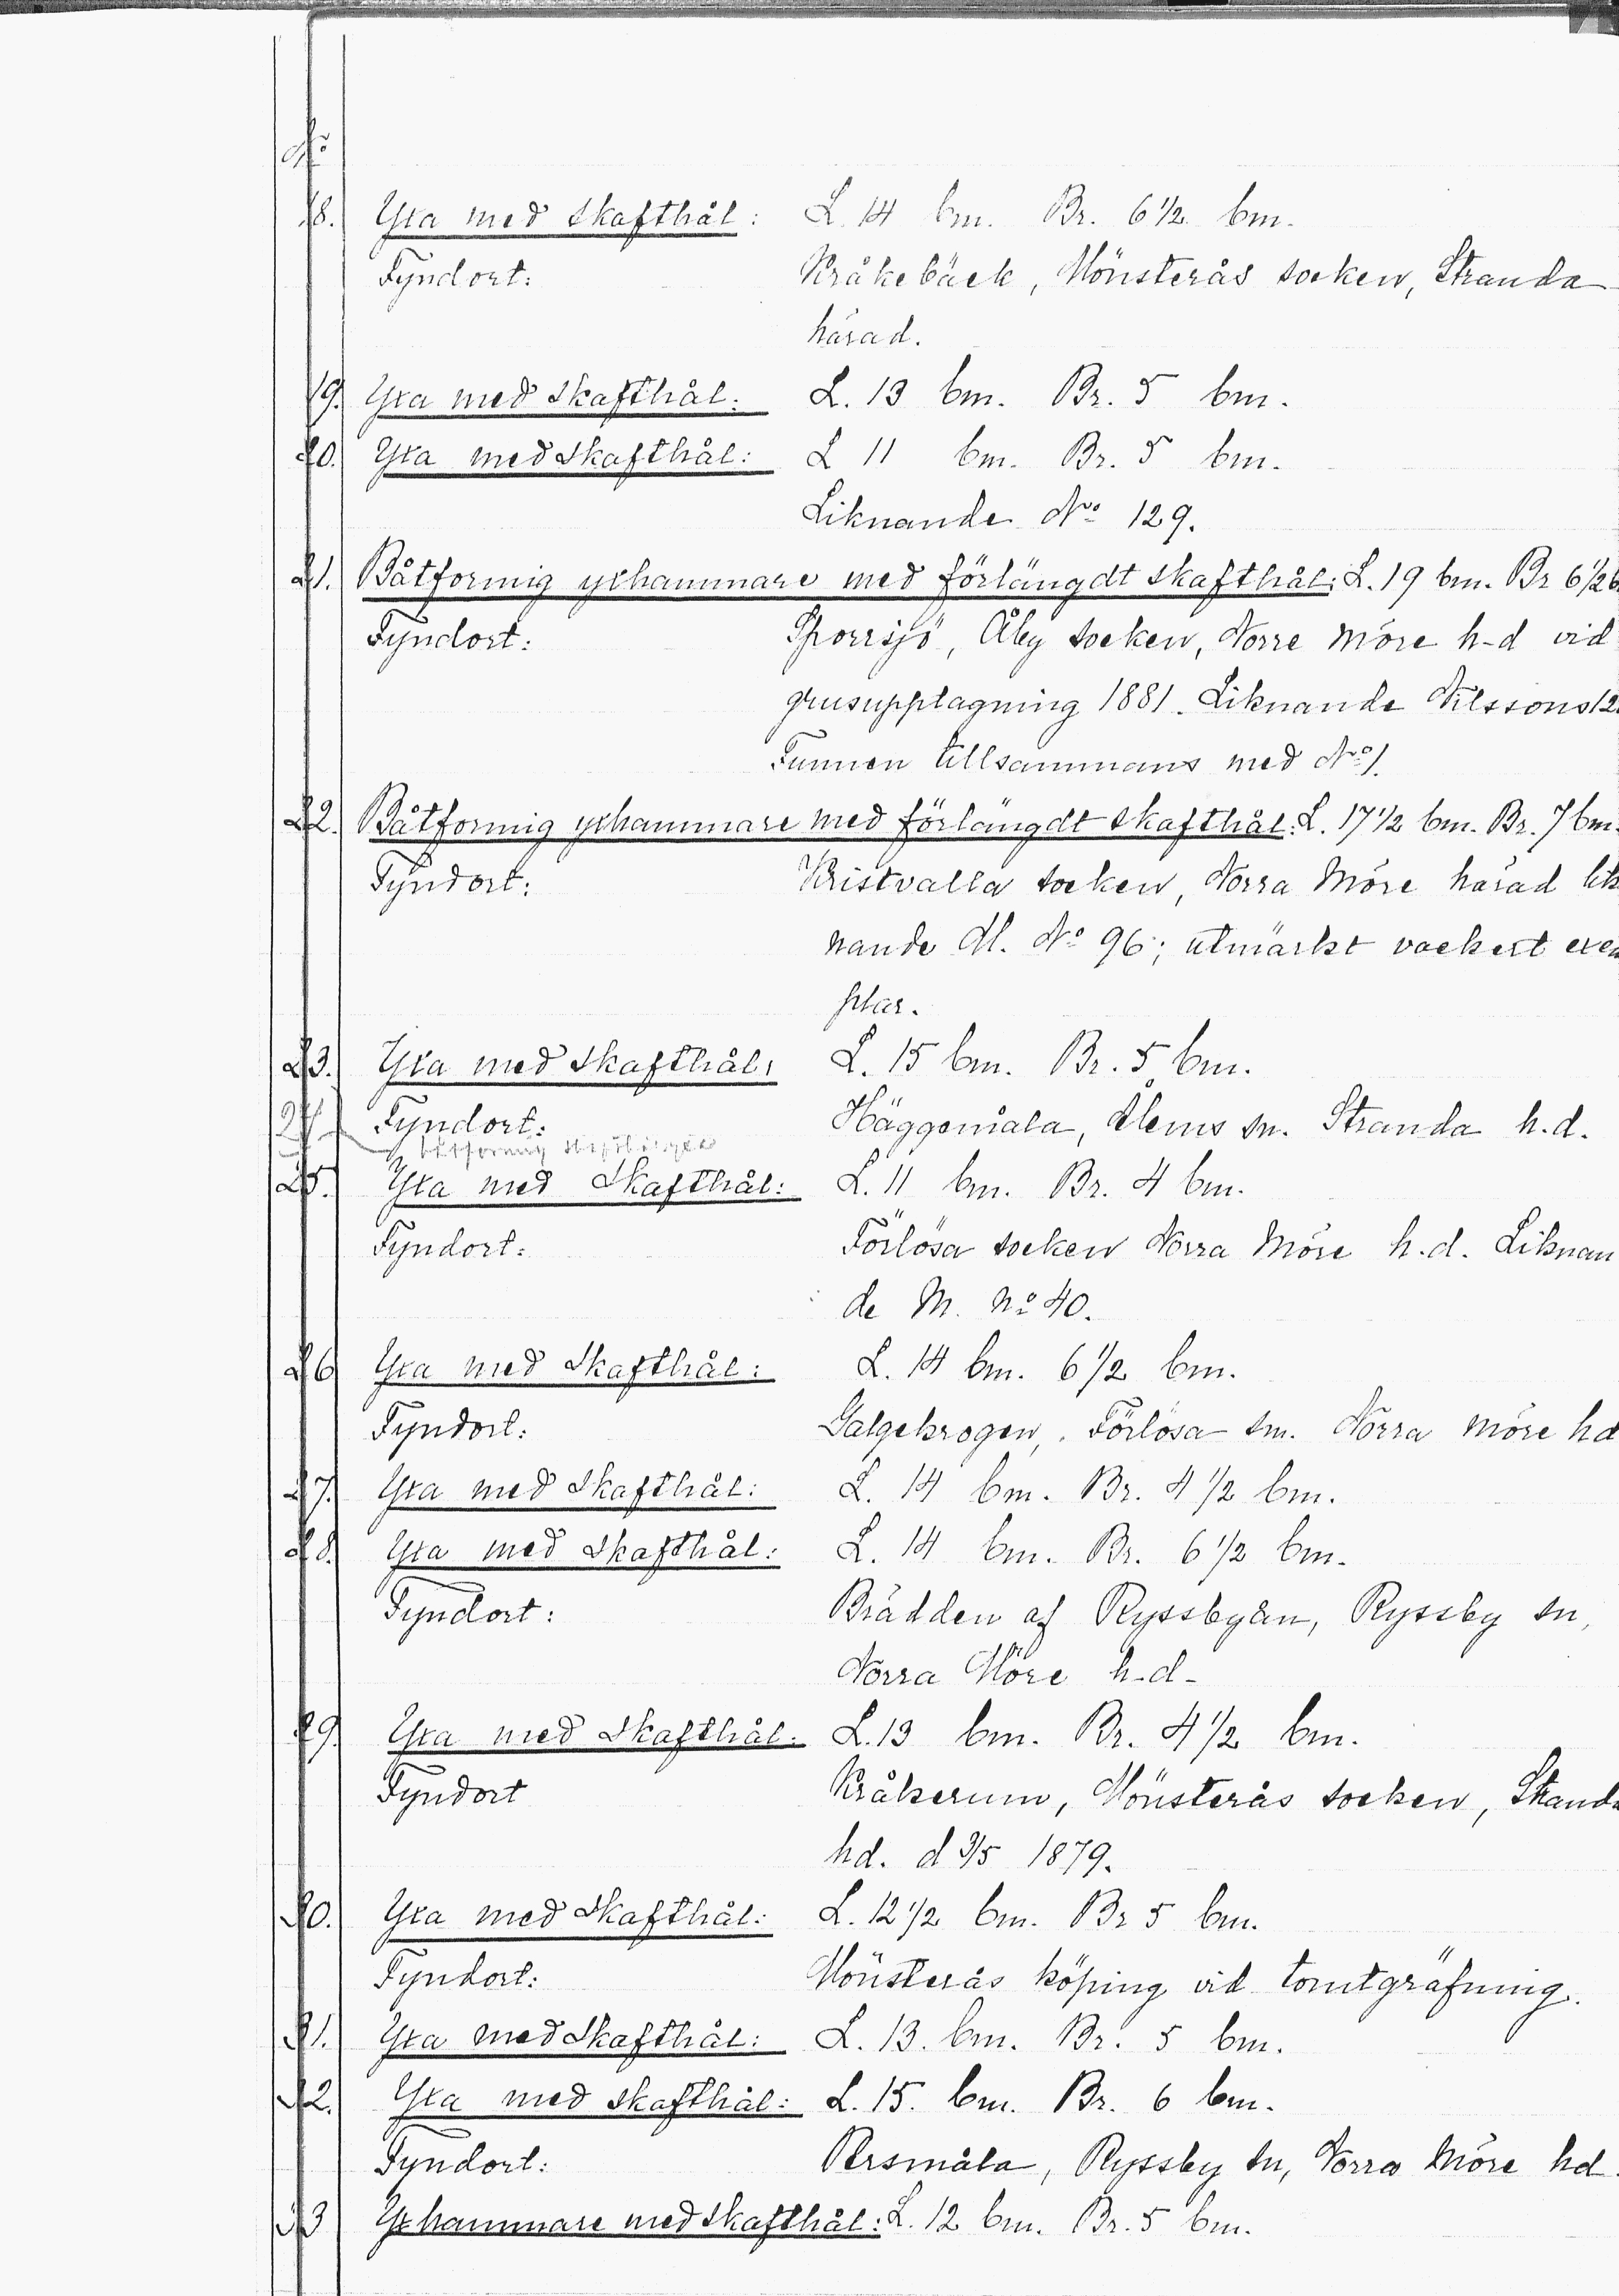 No
18. Yxa med skafthål: L. 14 Cm. Br. 6 1/2 Cm.
Fyndort: Kråkebäck, Mönsterås socken, Stranda
härad.
19. Yxa med skafthål: L. 13 Cm. Br. 5 Cm.
20. Yxa med skafthål: L 11 Cm. Br. 5 Cm.
Liknande No 129.
21. Båtformig yxhammare med förlängdt skafthål: L. 19 Cm. Br 6 1/2 C
Fyndort: Sporrsjö, Åby socken, Norre Möre h-d vid
grusupptagning 1881. Liknande Nilssons 12
Funnen tillsammans med No 1.
22. Båtformig yxhammare med förlängdt skafthål: L. 17 1/2 Cm. Br. 7 Cm.
Fyndort: Kristvalla socken, Norra Möre härad lik
nande M. No 96; utmärkt vackert exem
plar.
23. Yxa med skafthål: L. 15 Cm. Br. 5 Cm.
Fyndort: Häggemåla, Ålems sn. Stranda h.d.
24 båtformig
25. Yxa med Skafthål: L. 11 Cm. Br. 4 Cm.
Fyndort: Förlösa socken Norra Möre h.d. Liknan
de M. No 40.
26 Yxa med Skafthål: L. 14 Cm. 6 1/2 Cm.
Fyndort: Galgekrogen, Förlösa sn. Norra Möre hd
27. Yxa med Skafthål: L. 14 Cm. Br. 4 1/2 Cm.
28. Yxa med Skafthål: L. 14 Cm. Br. 6 1/2 Cm.
Fyndort: Brädden af Ryssbyån, Ryssby sn,
Norra Möre h-d-
29. Yxa med Skafthål: L. 13 Cm. Br. 4 1/2 Cm.
Fyndort Kråkerum, Mönsterås socken, Strand
hd. d 3/5 1879.
30. Yxa med Skafthål: L. 12 1/2 Cm. Br 5 Cm.
Fyndort: Mönsterås köping vid tomtgräfning.
31. Yxa med Skafthål: L. 13. Cm. Br. 5 Cm.
32. Yxa med skafthål: L. 15. Cm. Br. 6 Cm.
Fyndort: Persmåla, Ryssby sn, Norra Möre hd.
33 Yxhammare med skafthål: L. 12 Cm. Br. 5 Cm.